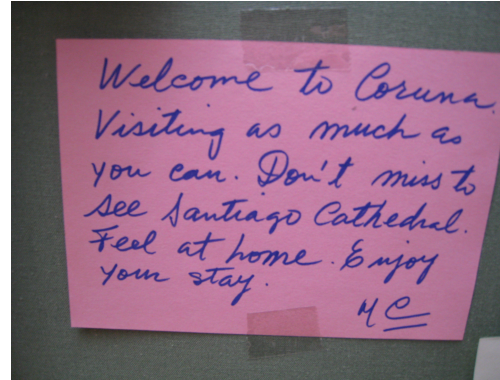 Welcome to Coruna.
Visiting as much as
you can. Don't miss to
see Santiago Cathedral.
Feel at home. Enjoy
your stay.
MC